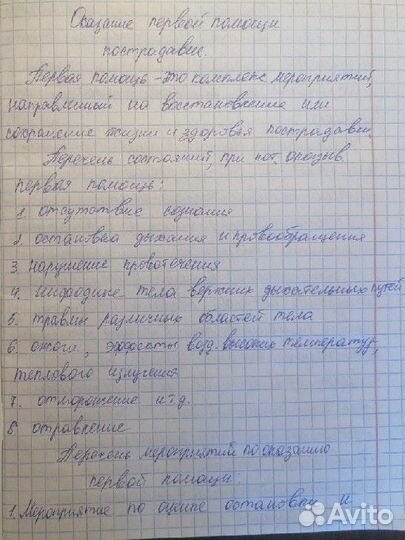 Оказание первой помощи
пострадавш.
Первая помощь - это комплекс мероприятий,
направленный на восстановление или
сохранение жизни и здоровья пострадавш.
Перечень состояний, при кот. оказыв.
первая помощь:
1. отсутствие сознания
2. остановка дыхания и кровообращения
3. нарушение кровотечения
4. инородные тела верхних дыхательных путей
5. травмы различных областей тела
6. ожоги, эффекты возд. высоких температур,
теплового излучения
7. отморожение и т.д.
8 отравление
Перечень мероприятий по оказанию
первой помощи.
1. Мероприятие по оценке остановки и
Avito